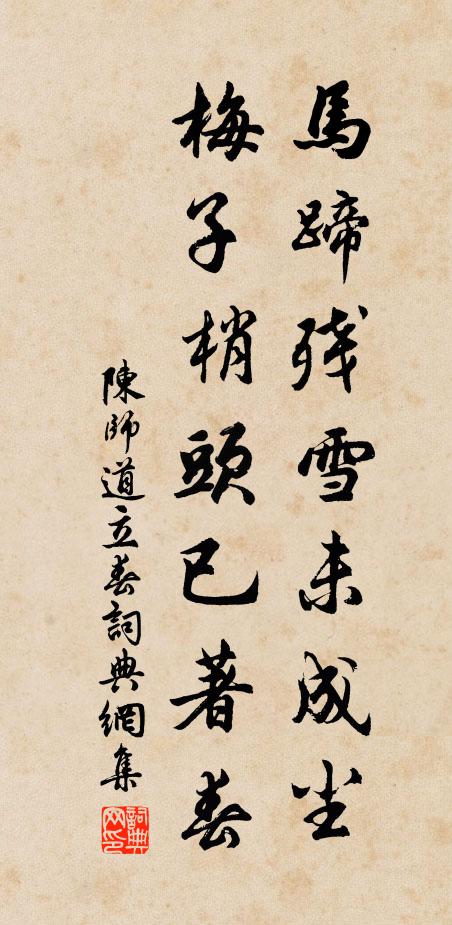 馬蹄残雪未成尘
梅子梢頭已著春
陳師道立春詞典網集
詞典网印